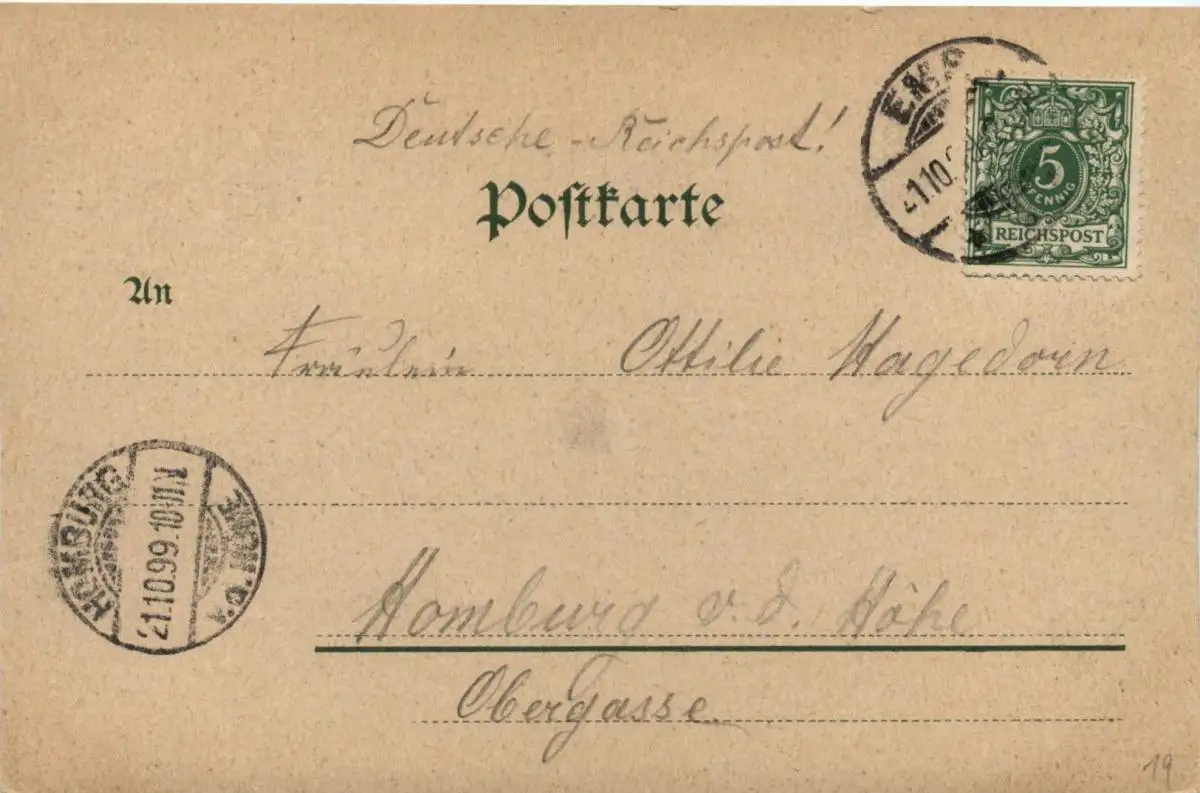 Deutsche-Reichspost!
Postkarte
EMS
21.10.
5
PFENNIG
REICHSPOST
An
Fräulein Ottilie Hagedorn
HOMBURG v.d. HÖHE
21.10.99.10-11N.
Homburg v. d. Höhe
Obergasse
19